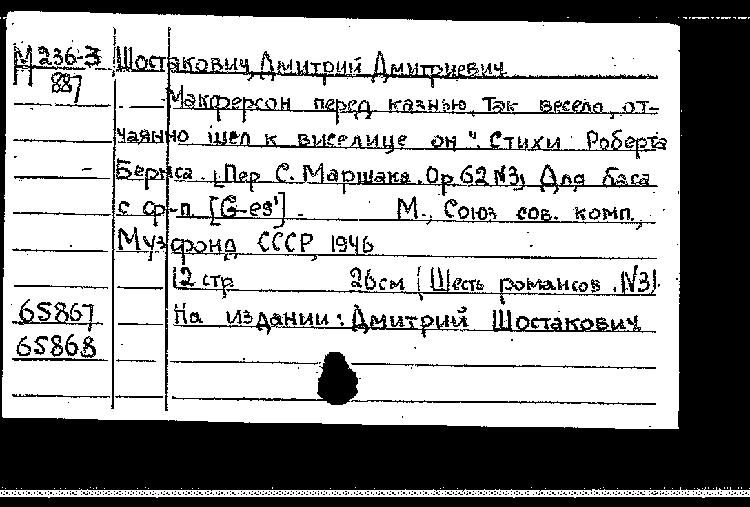 М 236-3 Шостакович, Дмитрий Дмитриевич
887 Макферсон перед казнью. Так весело, от-
чаянно шел к виселице он". Стихи Роберта
Бернса. [Пер С. Маршака. Ор. 62 №3] Для баса
с ф-п. [G-es¹]. М., Союз сов. комп.,
Музфонд СССР, 1946
12 стр 26 см (Шесть романсов. №3)
65867 На издании: Дмитрий Шостакович
65868